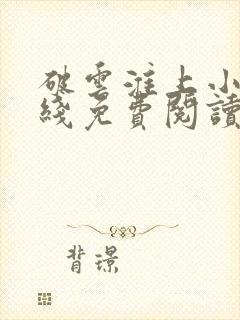 破雲淮上小
綫免費閱讀
背璟